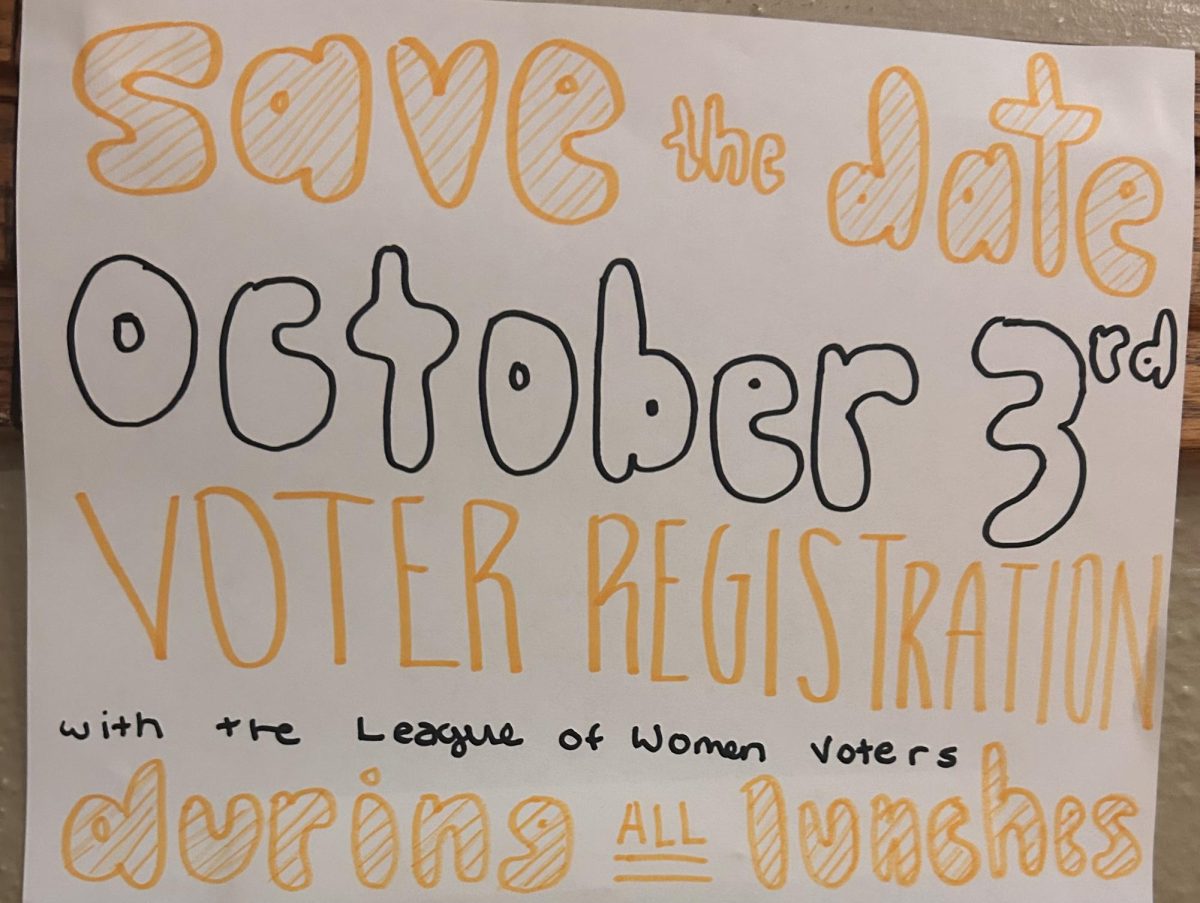 save the date
October 3rd
VOTER REGISTRATION
with the League of Women Voters
during ALL lunches